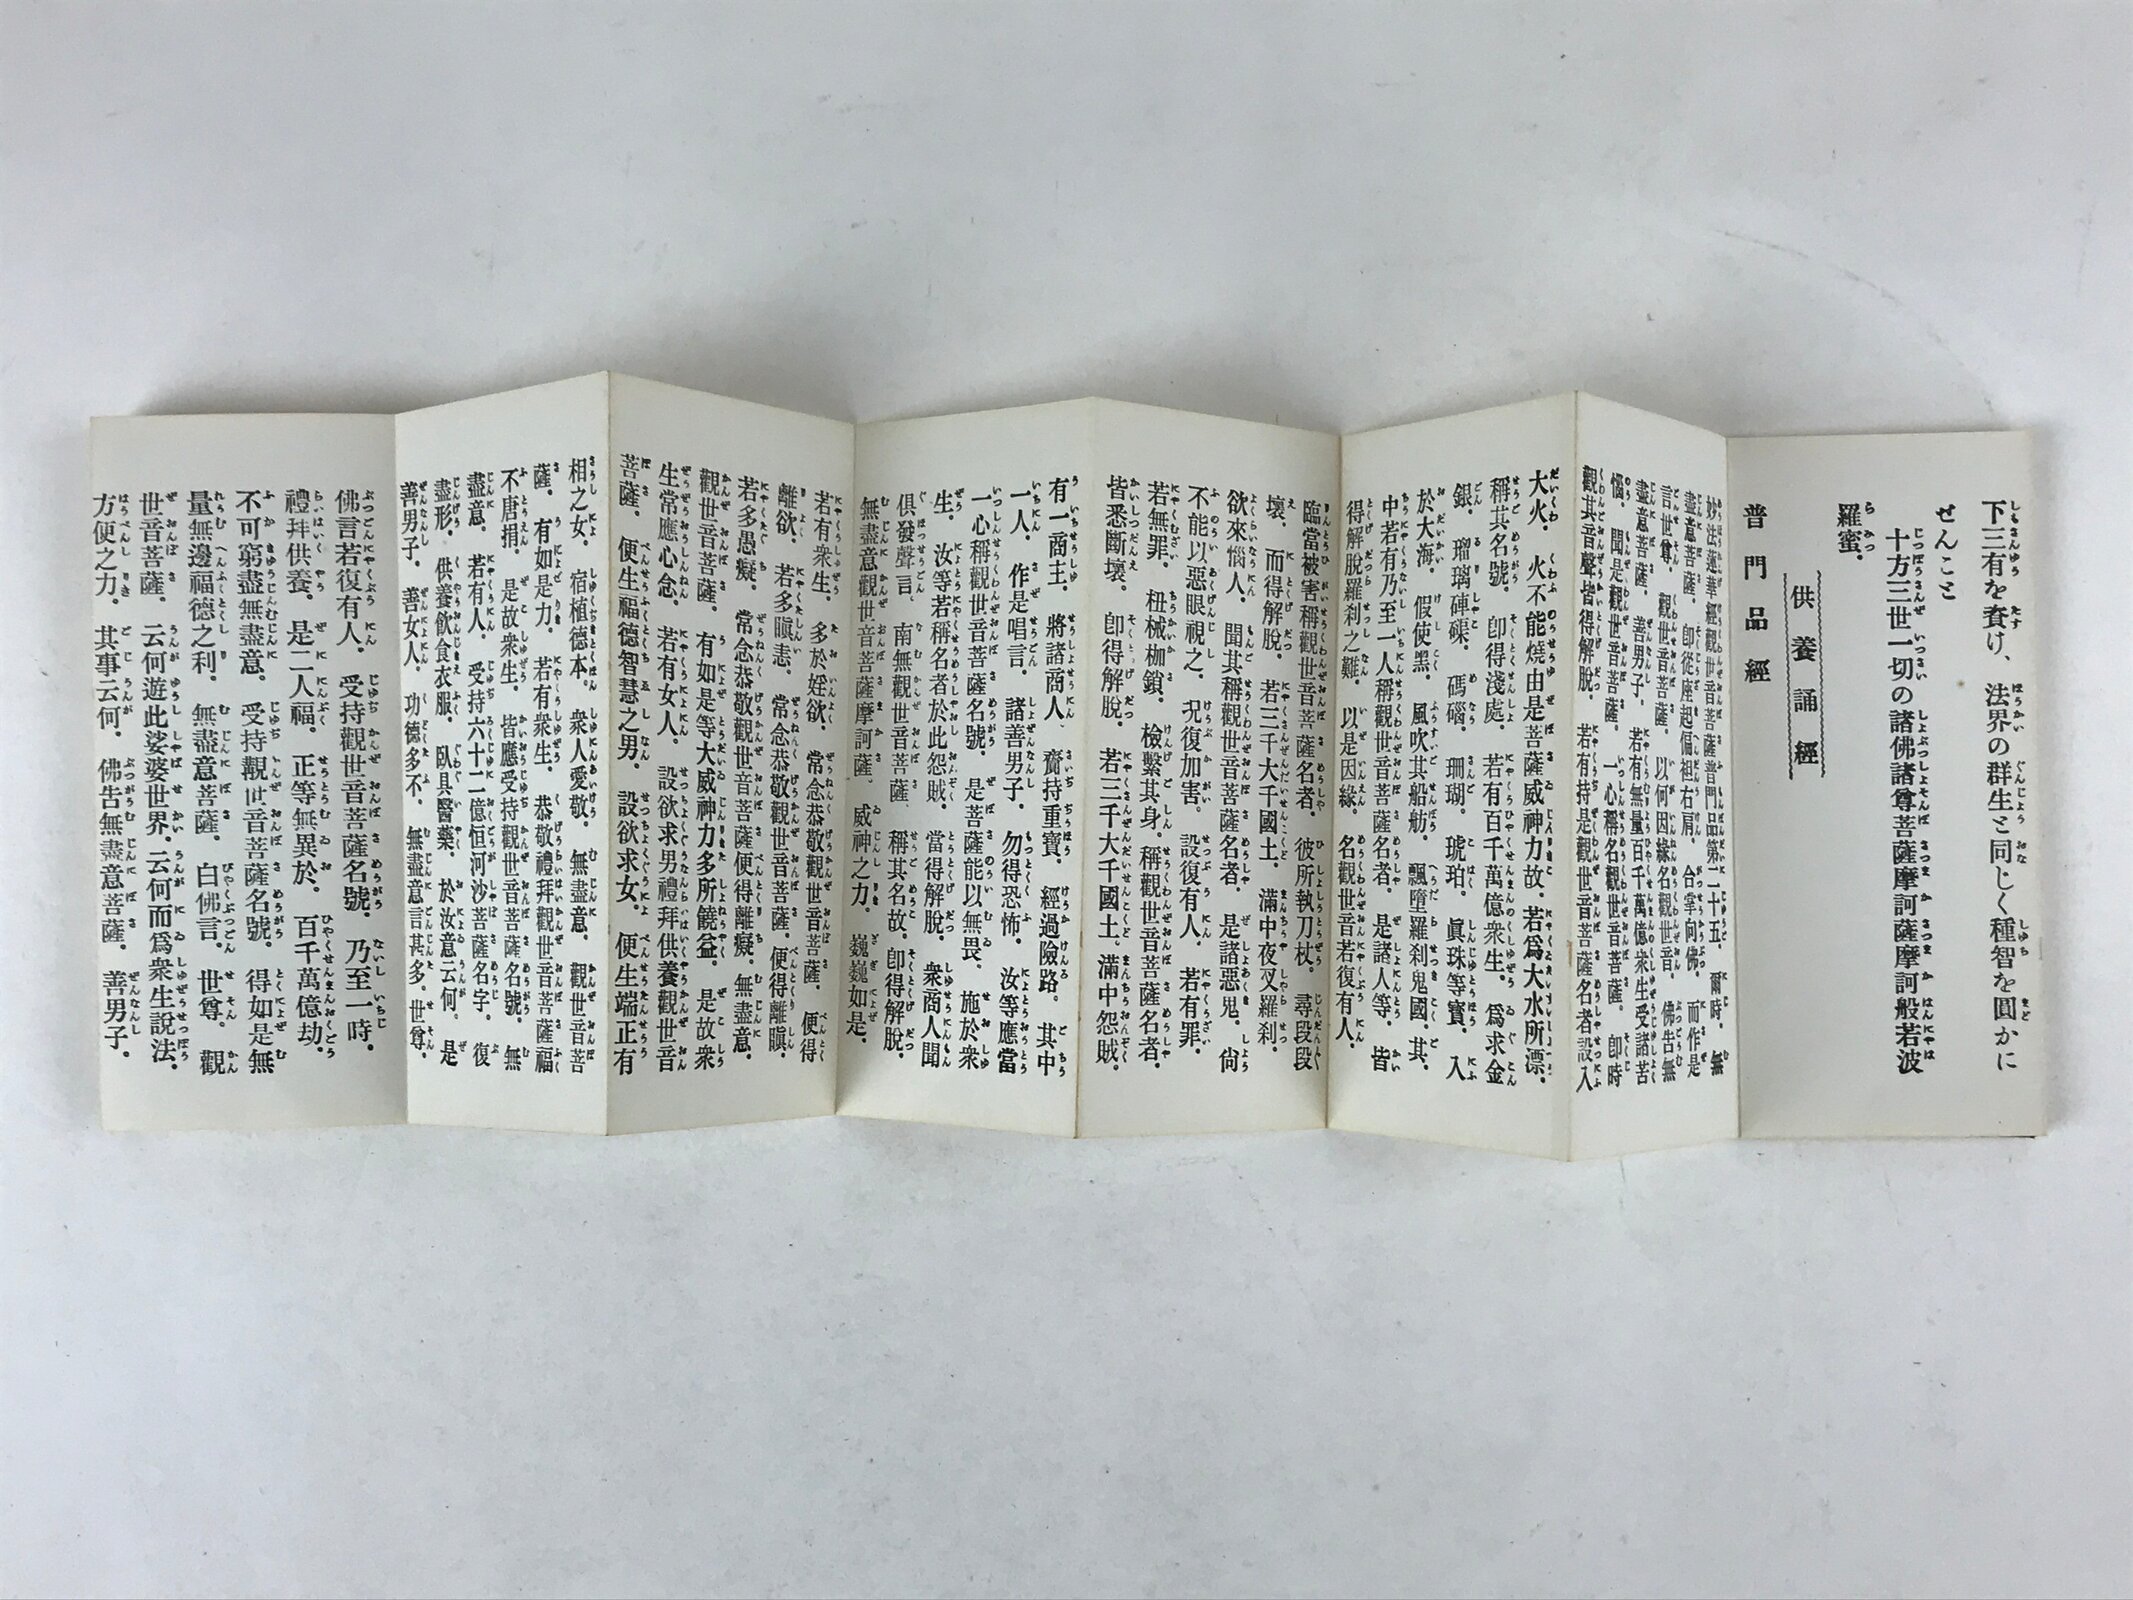 下三有を資け、法界の群生と同じく種智を圓かに
せんこと
十方三世一切の諸佛諸尊菩薩摩訶薩摩訶般若波
羅蜜．
供養誦經
普門品經
妙法蓮華經觀世音菩薩普門品第二十五．爾時．無
盡意菩薩．卽從座起偏袒右肩．合掌向佛．而作是
言世尊．觀世音菩薩．以何因緣名觀世音．佛告無
盡意菩薩．善男子．若有無量百千萬億衆生受諸苦
惱．聞是觀世音菩薩．一心稱名觀世音菩薩．卽時
觀其音聲皆得解脫．若有持是觀世音菩薩名者設入
大火．火不能燒由是菩薩威神力故．若爲大水所漂．
稱其名號．卽得淺處．若有百千萬億衆生．爲求金
銀．瑠璃硨磲．碼碯．珊瑚．琥珀．眞珠等寶．入
於大海．假使黑．風吹其船舫．飄墮羅刹鬼國．其．
中若有乃至一人稱觀世音菩薩名者．是諸人等．皆
得解脫羅刹之難．以是因緣．名觀世音若復有人．
臨當被害稱觀世音菩薩名者．彼所執刀杖．尋段段
壞．而得解脫．若三千大千國土．滿中夜叉羅刹．
欲來惱人．聞其稱觀世音菩薩名者．是諸惡鬼．尙
不能以惡眼視之．況復加害．設復有人．若有罪．
若無罪．杻械枷鎖．檢繫其身．稱觀世音菩薩名者．
皆悉斷壞．卽得解脫．若三千大千國土．滿中怨賊．
有一商主．將諸商人．齎持重寶．經過險路．其中
一人．作是唱言．諸善男子．勿得恐怖．汝等應當
一心稱觀世音菩薩名號．是菩薩能以無畏．施於衆
生．汝等若稱名者於此怨賊．當得解脫．衆商人聞
俱發聲言．南無觀世音菩薩．稱其名故．卽得解脫．
無盡意觀世音菩薩摩訶薩．威神之力．巍巍如是．
若有衆生．多於婬欲．常念恭敬觀世音菩薩．便得
離欲．若多瞋恚．常念恭敬觀世音菩薩．便得離瞋．
若多愚癡．常念恭敬觀世音菩薩便得離癡．無盡意．
觀世音菩薩．有如是等大威神力多所饒益．是故衆
生常應心念．若有女人．設欲求男禮拜供養觀世音
菩薩．便生福德智慧之男．設欲求女．便生端正有
相之女．宿植德本．衆人愛敬．無盡意．觀世音菩
薩．有如是力．若有衆生．恭敬禮拜觀世音菩薩福
不唐捐．是故衆生．皆應受持觀世音菩薩名號．無
盡意．若有人．受持六十二億恒河沙菩薩名字．復
盡形．供養飮食衣服．臥具醫藥．於汝意云何．是
善男子．善女人．功德多不．無盡意言甚多．世尊．
佛言若復有人．受持觀世音菩薩名號．乃至一時．
禮拜供養．是二人福．正等無異於．百千萬億劫．
不可窮盡無盡意．受持觀世音菩薩名號．得如是無
量無邊福德之利．無盡意菩薩．白佛言．世尊．觀
世音菩薩．云何遊此娑婆世界．云何而爲衆生說法．
方便之力．其事云何．佛告無盡意菩薩．善男子．